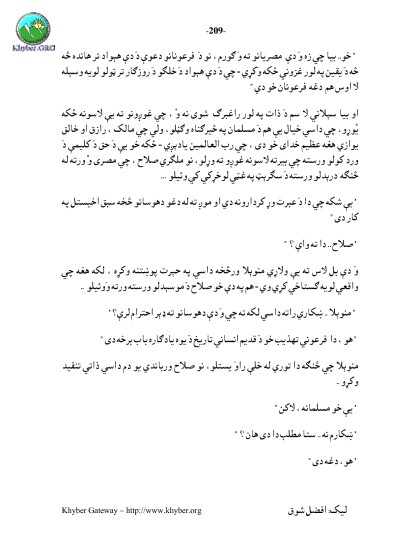 Khyber.ORG
-209-
" خو.. بيا چې زه وَ دې مصريانو ته وَ ګورم ، نو دَ فرعونانو دعوې دَ دې هېواد تر هانده څه
څه دَ يقين په لور غزونې ځکه وکړي - چې دَ دې هېواد دَ خلکو دَ روزګار تر ټولو لويه وسيله
لا اوس هم دغه فرعنان خو دي "
او بيا سېلاني لا سم دَ ذات په لور راغبرګ شوی نه وُ ، چې غوږونو ته يې لاسونه ځکه
يُوړو ، چې داسې خيال يې هم دَ مسلمان په څېر ګناه وګڼلو ، ولې چې مالک ، رازق او خالق
يوازې هغه عظيم خدای خو دی ، چې رب العالمين يادېږي - ځکه خو يې دَ حق دَ کليمې دَ
ورد کولو ورسته چې بېرته لاسونه غوږو ته وړلو ، نو ملګري صلاح ، چې مصری وُ ورته له
څنګه درېدلو ورسته دَ سګرېټ په غټې لوخړکي کې وئيلو ...
" بې شکه چې دا دَ عبرت وړ کردارونه دي او موږ ته له دغو دهوسانو څخه سبق اخيستل په
کار دی "
" صلاح.. دا ته وای؟ "
وَ دې بل لاس ته يې ولاړې منوبلا ورڅخه داسې په حيرت پوښتنه وکړه ، لکه هغه چې
واقعي لويه ګستاخي کړې وي - هم په دې خو صلاح دَ موسېدلو ورسته ورته وَوئيلو ..
" منوبلا .. ښکارې راته داسې لکه ته چې وَ دې دهوسانو ته ډېر احترام لرې؟ "
" هو ، دا فرعوني تهذيب خو دَ قديم انساني تاريخ دَ يوه يادګاره باب برخه دی "
منوبلا چې څنګه دا تورې له خلې راوَ يستلو ، نو صلاح ورباندې يو دم داسې ذاتي تنقيد
وکړو -
" يې خو مسلمانه ، لاکن "
" ښکارم نه.. ستا مطلب دا دی هان ؟ "
" هو ، دغه دی "
Khyber Gateway – http://www.khyber.org
ليک: افضل شوق